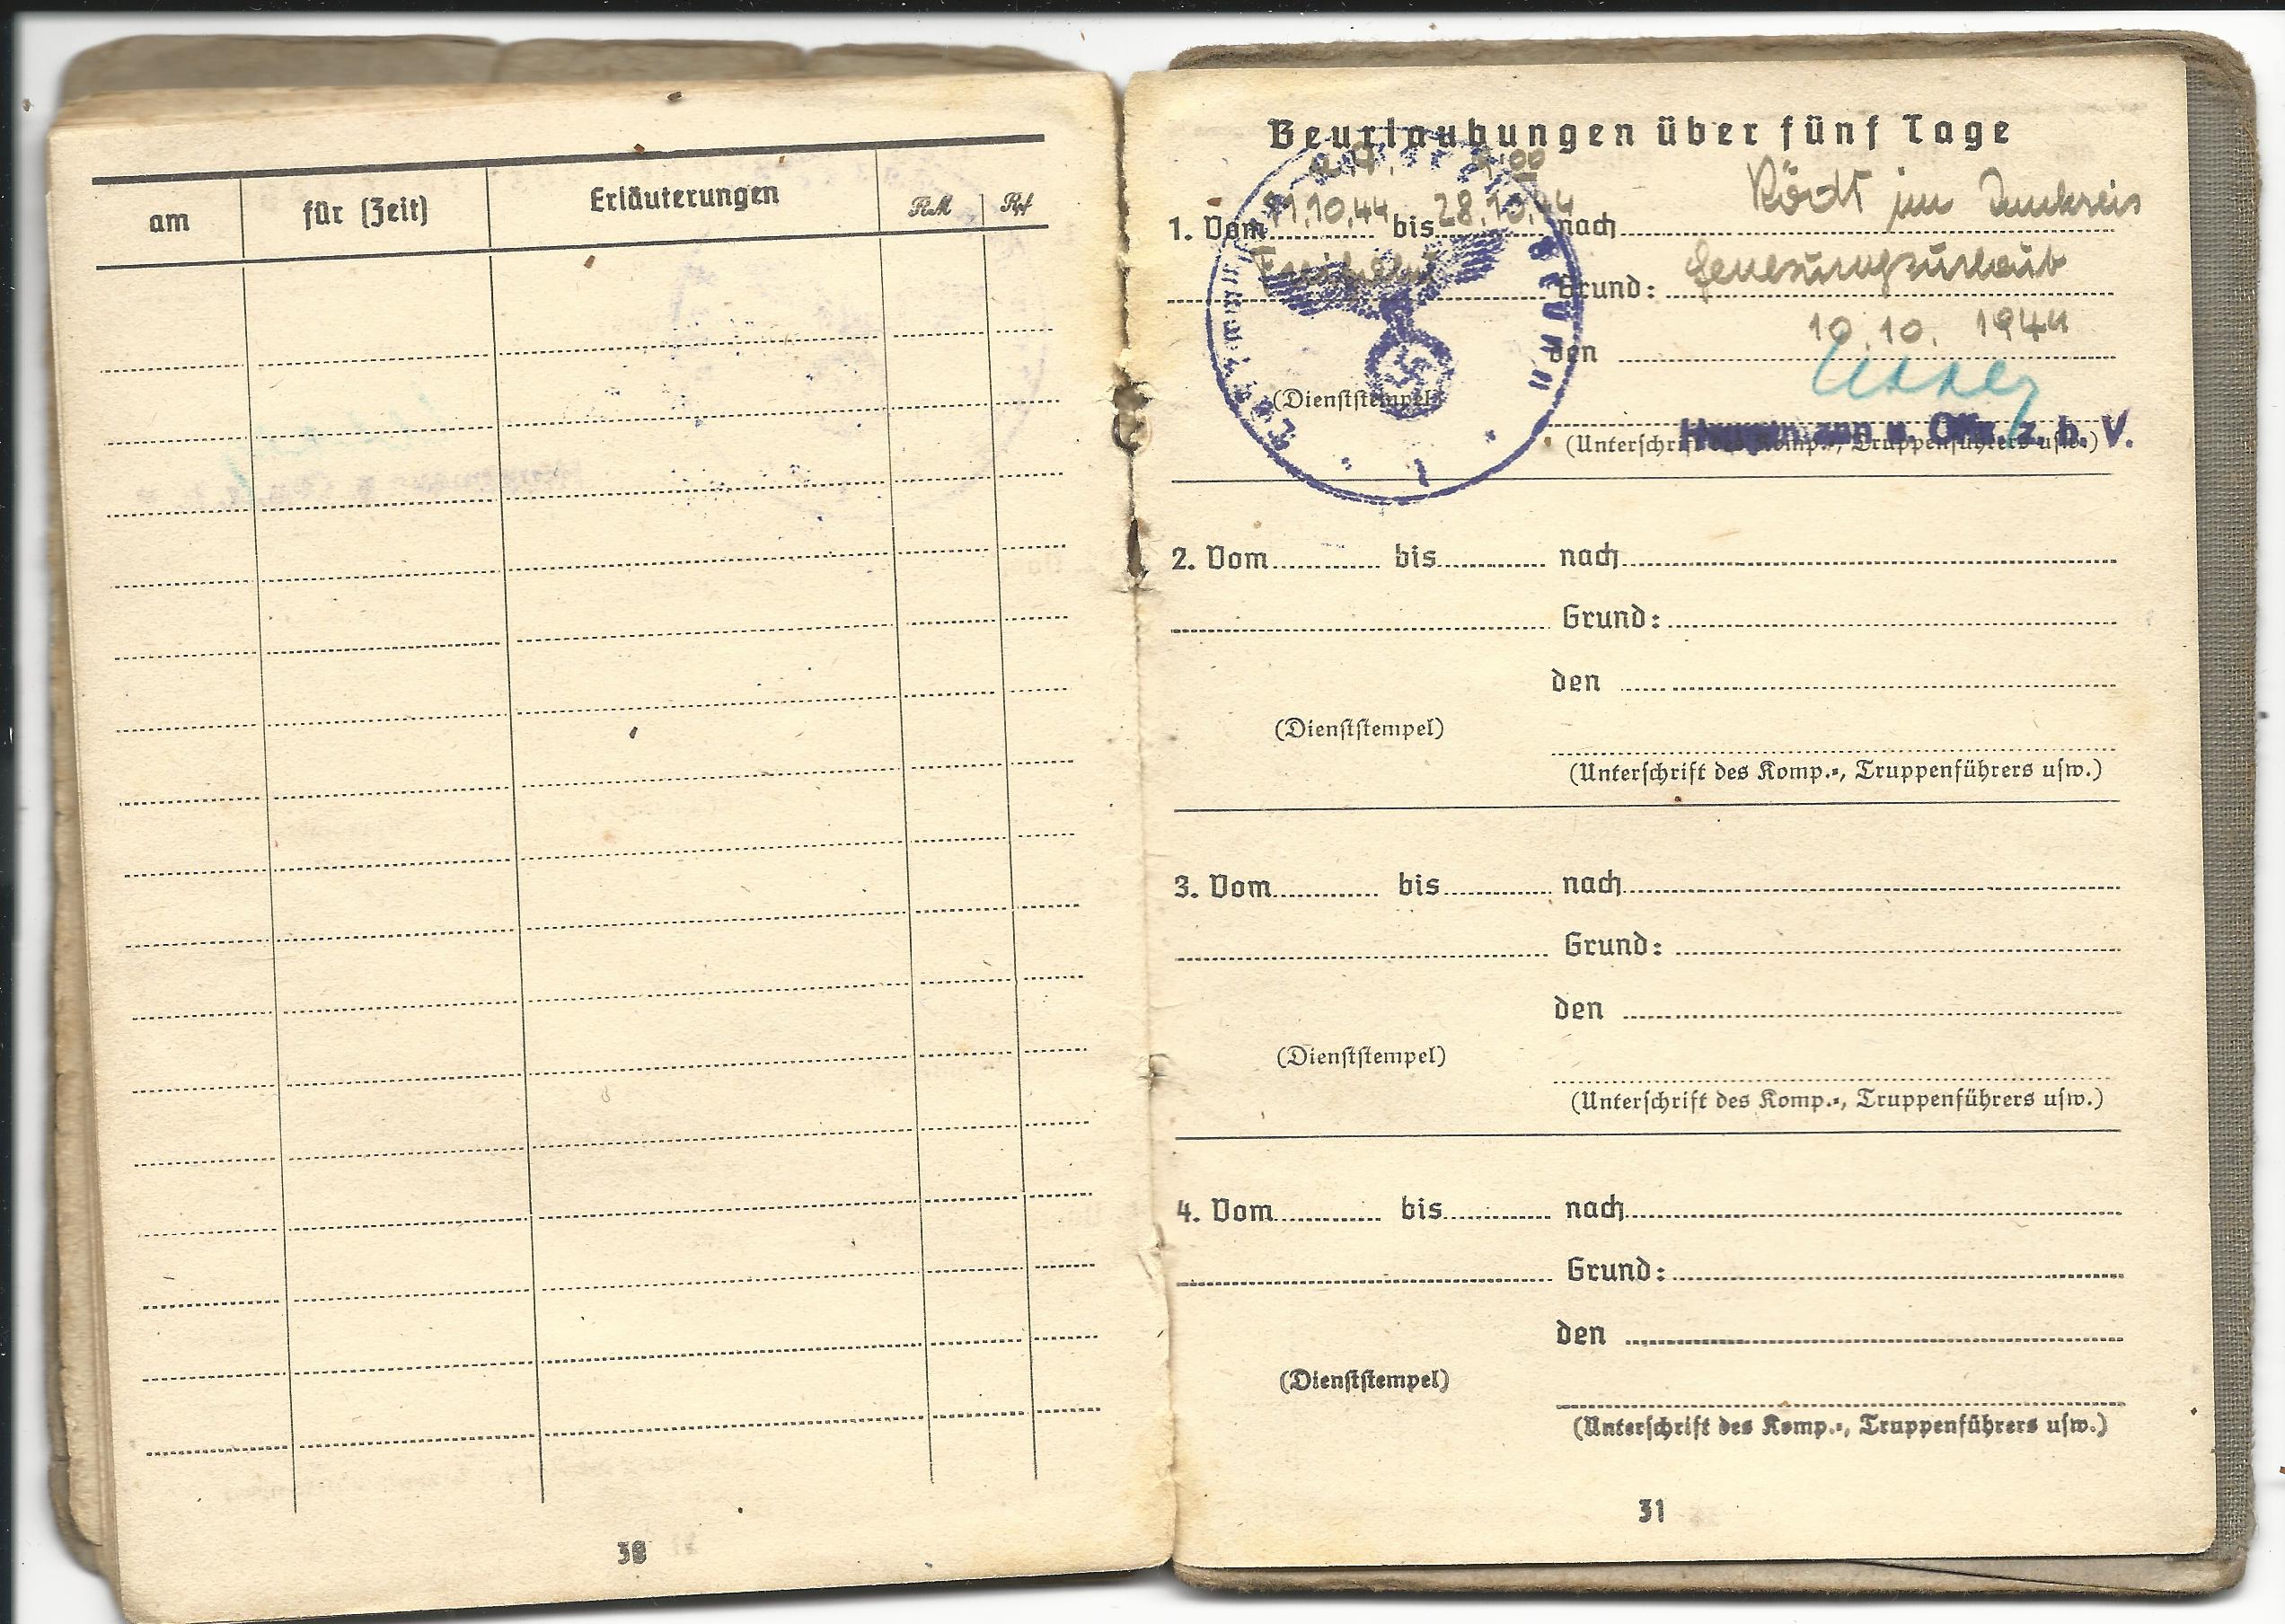 am für (Zeit) Erläuterungen RM Rpf
30
Beurlaubungen über fünf Tage
1. Vom 11.10.44 bis 28.10.44 nach Rödt im
Grund: Genesungsurlaub
den 10.10. 1944
(Dienststempel)
u. Offz. z. b. V.
(Unterschrift des Komp.-, Truppenführers usw.)
2. Vom bis nach
Grund:
den
(Dienststempel)
(Unterschrift des Komp.-, Truppenführers usw.)
3. Vom bis nach
Grund:
den
(Dienststempel)
(Unterschrift des Komp.-, Truppenführers usw.)
4. Vom bis nach
Grund:
den
(Dienststempel)
(Unterschrift des Komp.-, Truppenführers usw.)
31